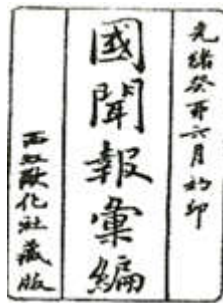 光緒癸卯六月初印
國聞報彙編
西江歐化社藏版